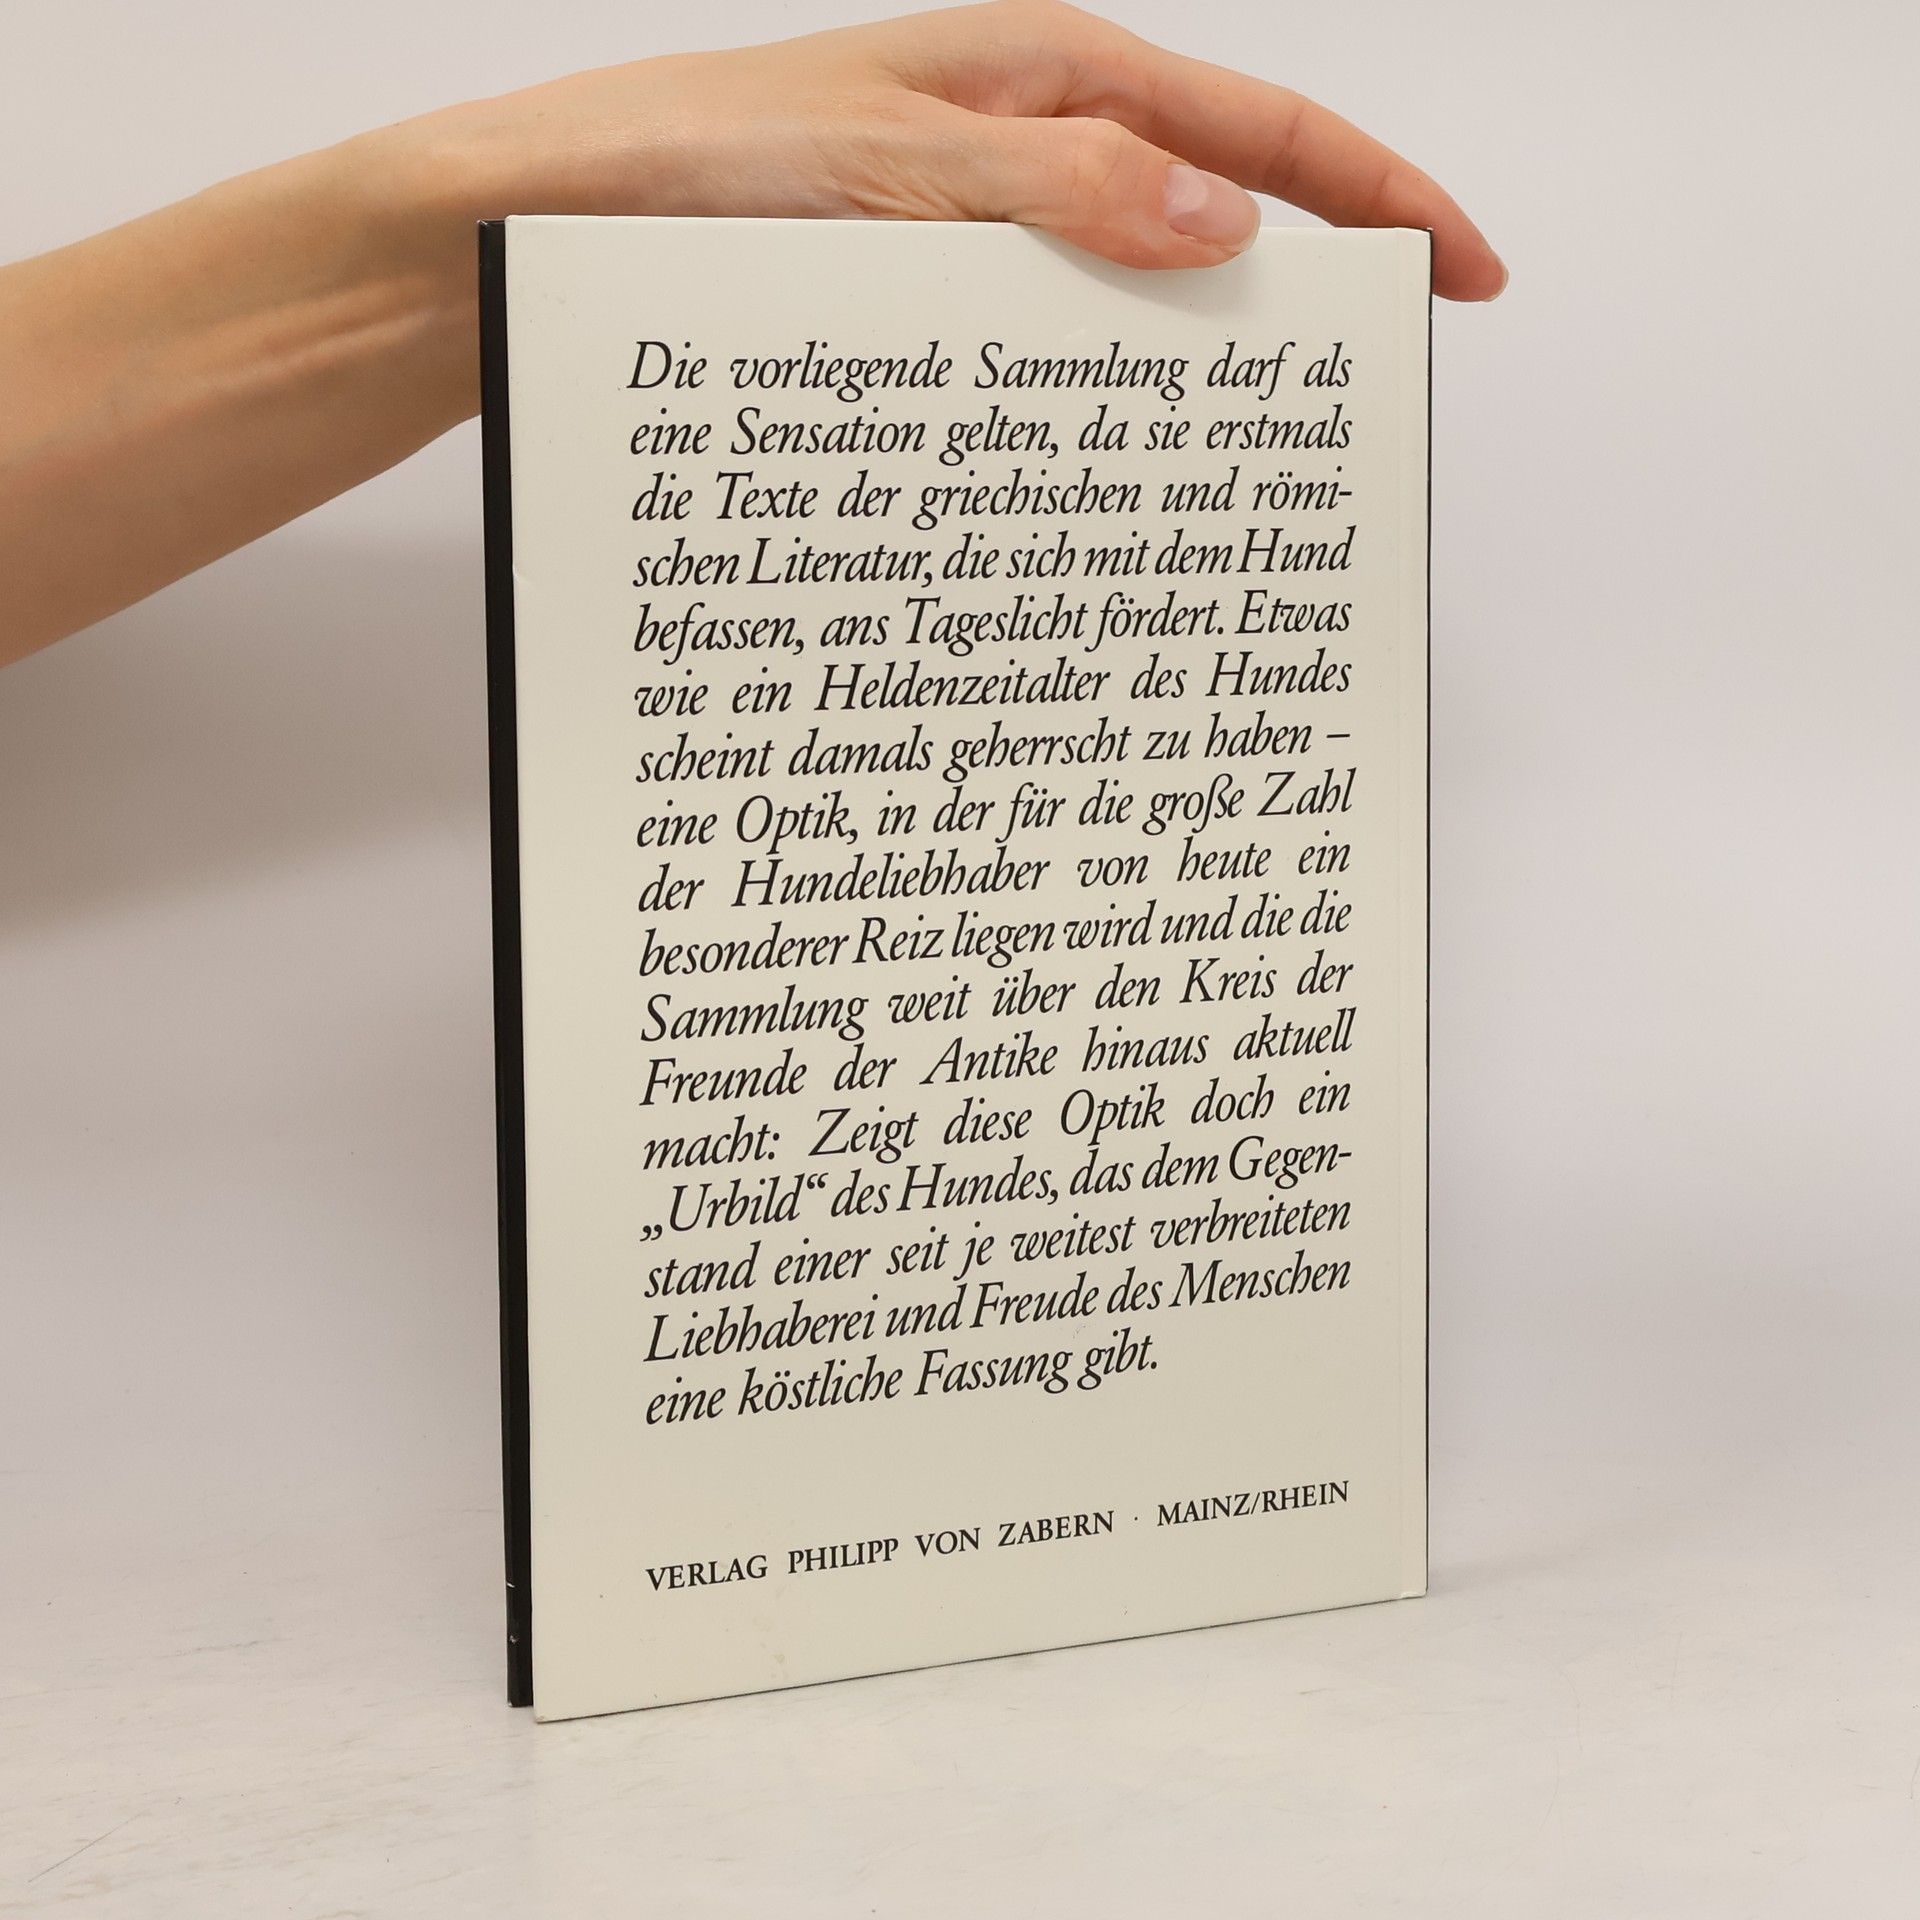 Die vorliegende Sammlung darf als
eine Sensation gelten, da sie erstmals
die Texte der griechischen und römi-
schen Literatur, die sich mit dem Hund
befassen, ans Tageslicht fördert. Etwas
wie ein Heldenzeitalter des Hundes
scheint damals geherrscht zu haben –
eine Optik, in der für die große Zahl
der Hundeliebhaber von heute ein
besonderer Reiz liegen wird und die die
Sammlung weit über den Kreis der
Freunde der Antike hinaus aktuell
macht: Zeigt diese Optik doch ein
„Urbild“ des Hundes, das dem Gegen-
stand einer seit je weitest verbreiteten
Liebhaberei und Freude des Menschen
eine köstliche Fassung gibt.
VERLAG PHILIPP VON ZABERN · MAINZ/RHEIN